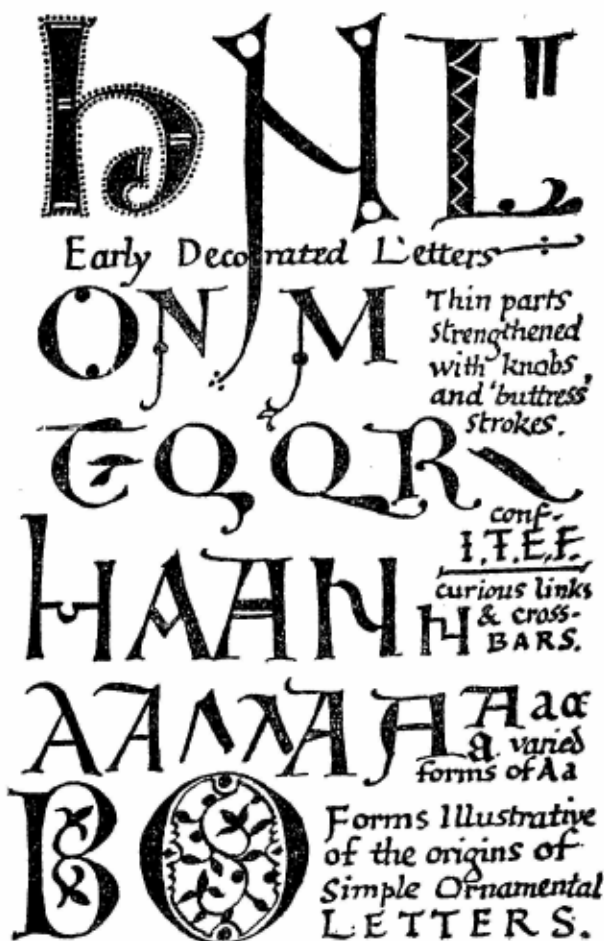 h N L
Early Decorated Letters
O N M
Thin parts
strengthened
with knobs,
and 'buttress'
strokes.
G Q Q R
conf-
I.T.E.F.
H A A N
curious links
H & cross-
BARS.
A A Λ Λ A A A a a
a varied
forms of Aa
B O
Forms Illustrative
of the origins of
Simple Ornamental
LETTERS.